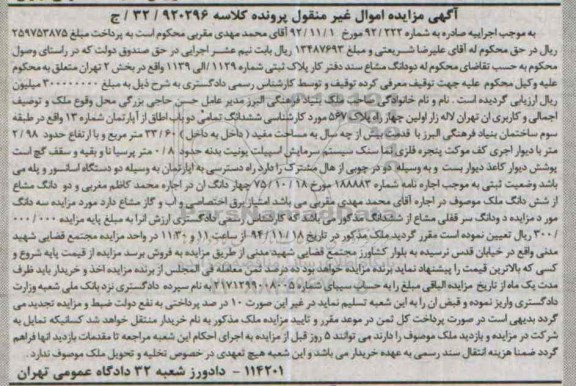 آگهی مزایده اموال غیر منقول پرونده کلاسه ۹۲۰۲۹۶ / ۳۲ / ج
به موجب اجراییه صادره به شماره ۹۲/۲۲۲ مورخ ۹۲/۱۱/۱ آقای محمد مهدی مقربی محکوم است به پرداخت مبلغ ۲۵۹۷۵۳۸۷۵
ریال در حق محکوم له آقای علیرضا شریعتی و مبلغ ۱۳۴۸۷۶۹۳ ریال بابت نیم عشر اجرایی در حق صندوق دولت که در راستای وصول
محکوم به حسب تقاضای محکوم له دودانگ مشاع سند دفتر کار پلاک ثبتی شماره ۱۱۲۹/ الی ۱۱۳۹ واقع در بخش ۲ تهران متعلق به محکوم
علیه وکیل محکوم علیه جهت توقیف معرفی کرده توقیف و توسط کارشناس رسمی دادگستری به شرح ذیل به مبلغ ۳۰۰۰۰۰۰۰۰ میلیون
ریال ارزیابی گردیده است . نام و نام خانوادگی صاحب ملک بنیاد فرهنگی البرز مدیر عامل حسن حاجی بزرگی محل وقوع ملک و توضیف
اجمالی و کاربری ان تهران لاله زار اولین چهار راه پلاک ۵۶۷ مورد کارشناسی ششدانگ تمامی دو باب اطاق از آپارتمان شماره ۱۳ واقع در طبقه
سوم ساختمان بنیاد فرهنگی البرز با قدمت بیش از چه سال به مساحت مفید ( داخل به داخل ) ۳۳/۶۰ متر مربع و با ارتفاع حدود ۲/۹۸
متر با دیوار اجری کف موکت پنجره فلزی نما سنگ سیستم سرمایش اسپیلت یونیت بدنه حدود ۰/۸ متر پرسپا تا و بقیه و سقف گچ است
پوشش دیوار کاغذ دیوار بست و به وسیله دو در چوبی از هال مشترک را دارد راه دسترسی به اپارتمان به وسیله دو دستگاه اسانسور و پله می
باشد وضعیت ثبتی به موجب اجاره نامه شماره ۱۸۸۸۸۳ مورخ ۷۵/۱۰/۱۸ چهار دانگ ان در اجاره محمد کاظم مغربی و دو دانگ مشاع
از شش دانگ ملک موصوف در اجاره آقای محمد مهدی مقربی می باشد امتیاز برق اختصاصی و اب و گاز مشاع دارد مورد مزایده سه دانگ
مور د مزایده دودانگ سر قفلی مشاع از ششدانگ مذکور می باشد که کارشناس رسمی دادگستری ارزش انرا به مبلغ پایه مزایده ۰۰۰/۰۰۰
/۳۰۰ ریال تعیین نموده است مقرر گردید ملک مذکور در تاریخ ۹۴/۱۱/۱۸ از ساعت ۱۱ و ۱۱:۳۰ در واحد مزایده مجتمع قضایی شهید
مدنی واقع در خیابان قدس نرسیده به بلوار کشاورز مجتمع قضایی شهید مدنی از طریق مزایده به فروش برسد مزایده از قیمت پایه شروع و
کسی که بالاترین قیمت را پیشنهاد نماید برنده مزایده خواهد بود ده درصد ثمن معامله فی المجلس از برنده مزایده اخذ و خریدار باید ظرف
مدت یک ماه از تاریخ مزایده الباقی مبلغ را به حساب سیبای شماره نزد بانک ملی شعبه وزارت
دادگستری واریز نموده و قبض ان را به این شعبه تسلیم نماید در غیر این صورت ۱۰ در صد پرداختی به نفع دولت ضبط و مزایده تجدید می
گردد بدیهی است در صورت پرداخت کل ثمن در موعد مقرر و تایید مزایده ملک مذکور به نام خریدار منتقل خواهد شد کسانیکه تمایل به
شرکت در مزایده و بازدید ملک موصوف را دارند می توانند ۵ روز قبل از مزایده به اجرای احکام این شعبه مراجعه تا مقدمات بازدید انها فراهم
گردد ضمنا هزینه انتقال سند رسمی به عهده خریدار می باشد و این شعبه هیچ تعهدی در خصوص تخلیه و تحویل ملک موصوف ندارد .
۱۱۴۲۰۱ - دادورز شعبه ۳۲ دادگاه عمومی تهران